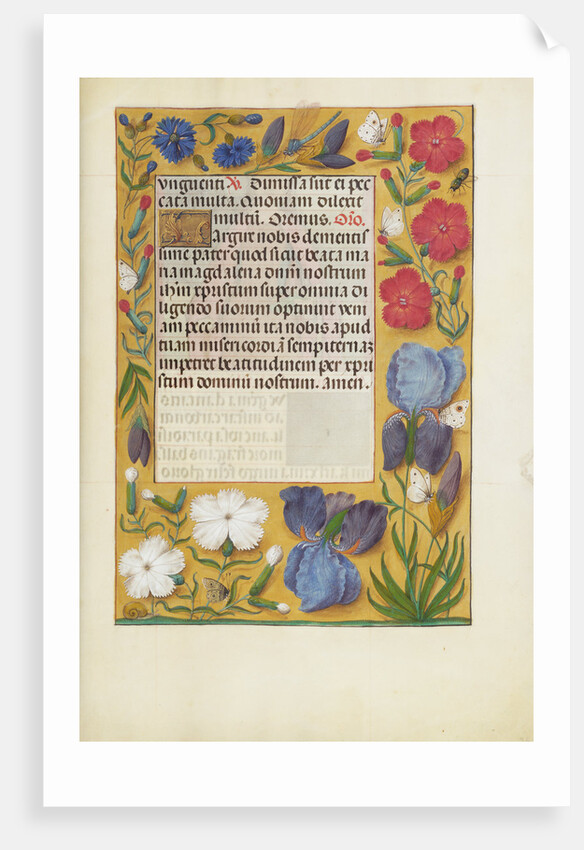 vnguenti Xpi. Dimissa sūt ei pec
cata multa. Quoniam dilexit
multū. Oremus. Orō.
Largire nobis clementis
sime pater quod sicut beata ma
ria magdalena dnm̄ nostrum
ihm̄ xpristum super omnia di
ligendo suorum optinuit veni
am peccaminū ita nobis apud
tuam misericordiā sempiternā
impetret beatitudinem per xpri
stum dominū nostrum. Amen.